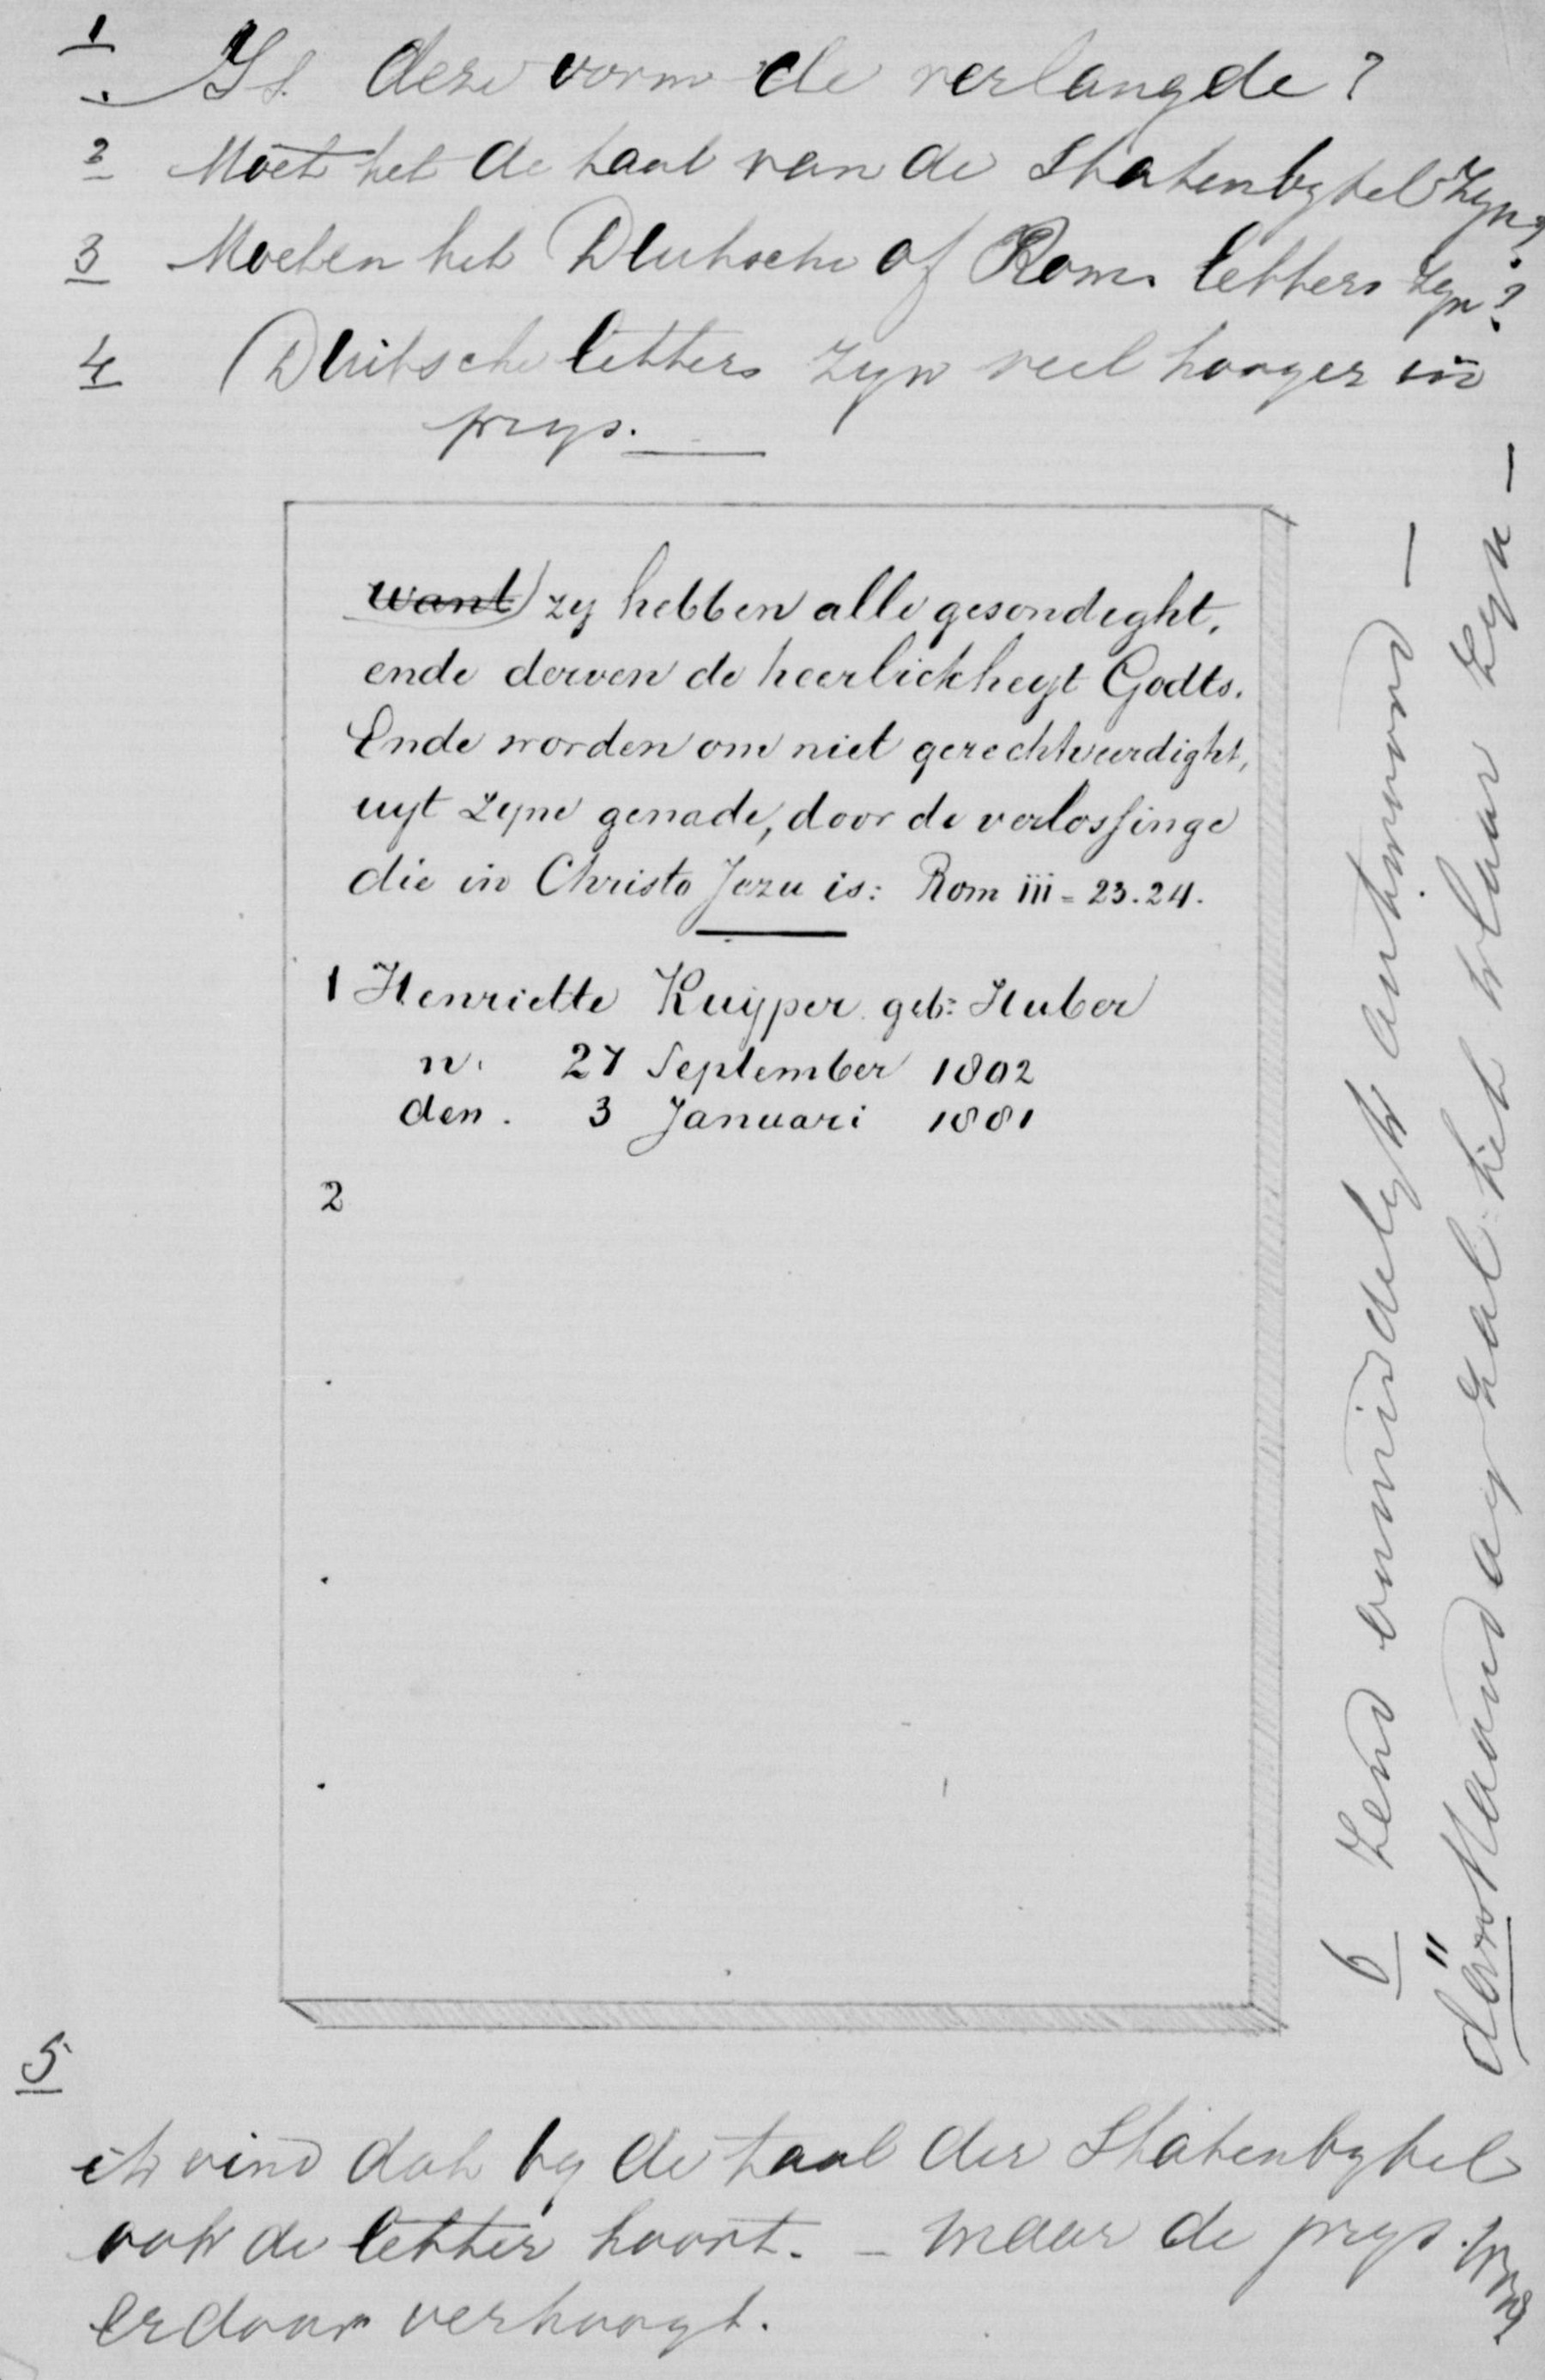 1 Is deze vorm de verlangde?
2 Moet het de taal van de Statenbybel zyn?
3 Moeten het Duitsche of Rom. letters zyn?
4 (Duitsche letters zyn veel hooger in
prys.
want) zy hebben alle gesondight,
ende derven de heerlickheyt Godts.
Ende worden om niet gerechtveerdight,
uyt zyne genade, door de verlossinge
die in Christo Jezu is: Rom iii = 23.24.
1 Henriette Kuijper geb: Huber
n. 27 September 1802
den. 3 Januari 1881
2
5
ik vind dat by de taal der Statenbybel
ook de letter hoort. - maar de prys
erdoor verhoogt.
6 Zend onmiddelyk antwoord -
Maandag zal het klaar zyn -